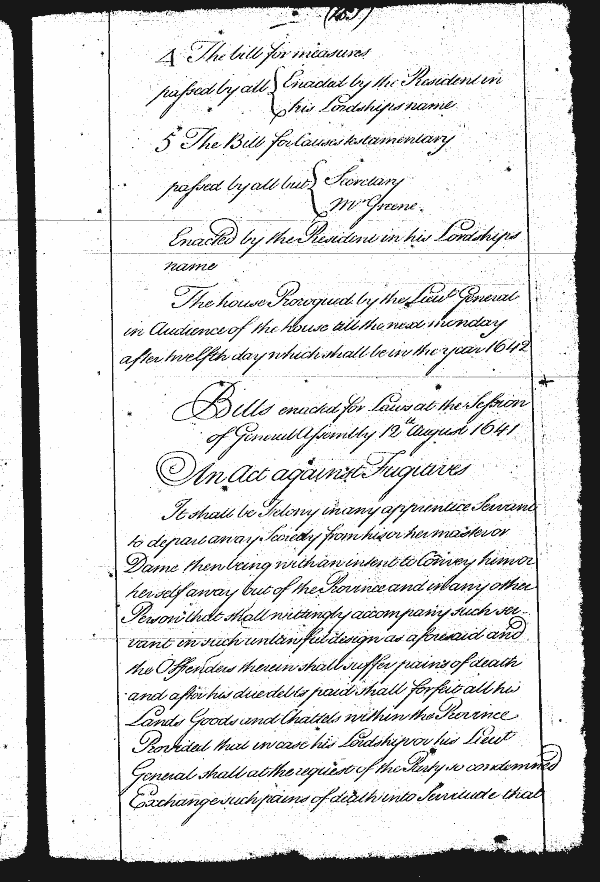 4 The bill for measures
passed by all { Enacted by the President in
his Lordships name
5 The Bill for Causes testamentary
passed by all but { Secretary
Mr Greene.
Enacted by the President in his Lordships
name
The house Prorogued by the Lieut General
in Audience of the house till the next munday
after twelfth day which shall be in the year 1642
Bills enacted for Laws at the Session
of General Assembly 12th August 1641
An Act against Fugitives
It shall be Felony in any apprentice Servant
to depart away Secretly from his or her master or
Dame then being with an intent to Convey him or
her self away out of the Province and in any other
Person that shall wittingly accompany such ser-
vant in such unlawful design as aforesaid and
the Offenders therein shall suffer pains of death
and after his due debts paid shall forfeit all his
Lands Goods and Chattels within the Province
Provided that in case his Lordship or his Lieut
General shall at the request of the Party so condemned
Exchange such pains of death into Servitude that